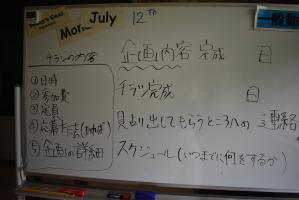 July 12th
一般動
チラシの内容
①日時
②参加費
③定員
④応募方法(あれば)
⑤企画の詳細
企画内容完成 日
チラシ完成 日
見 り出してもらうところへの連絡
スケジュール(いつまでに何をするか)